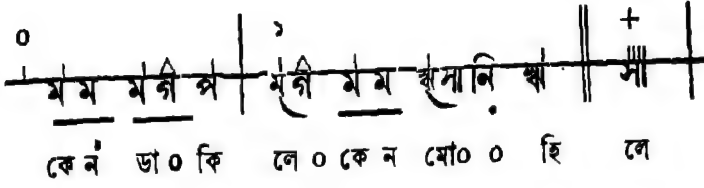 ০ ১ +
ম ম ম গ প ম গ ম ম ঋ সা নি ঋ সা
কে ন ডা ০ কি লে ০ কে ন মো০ ০ হি লে